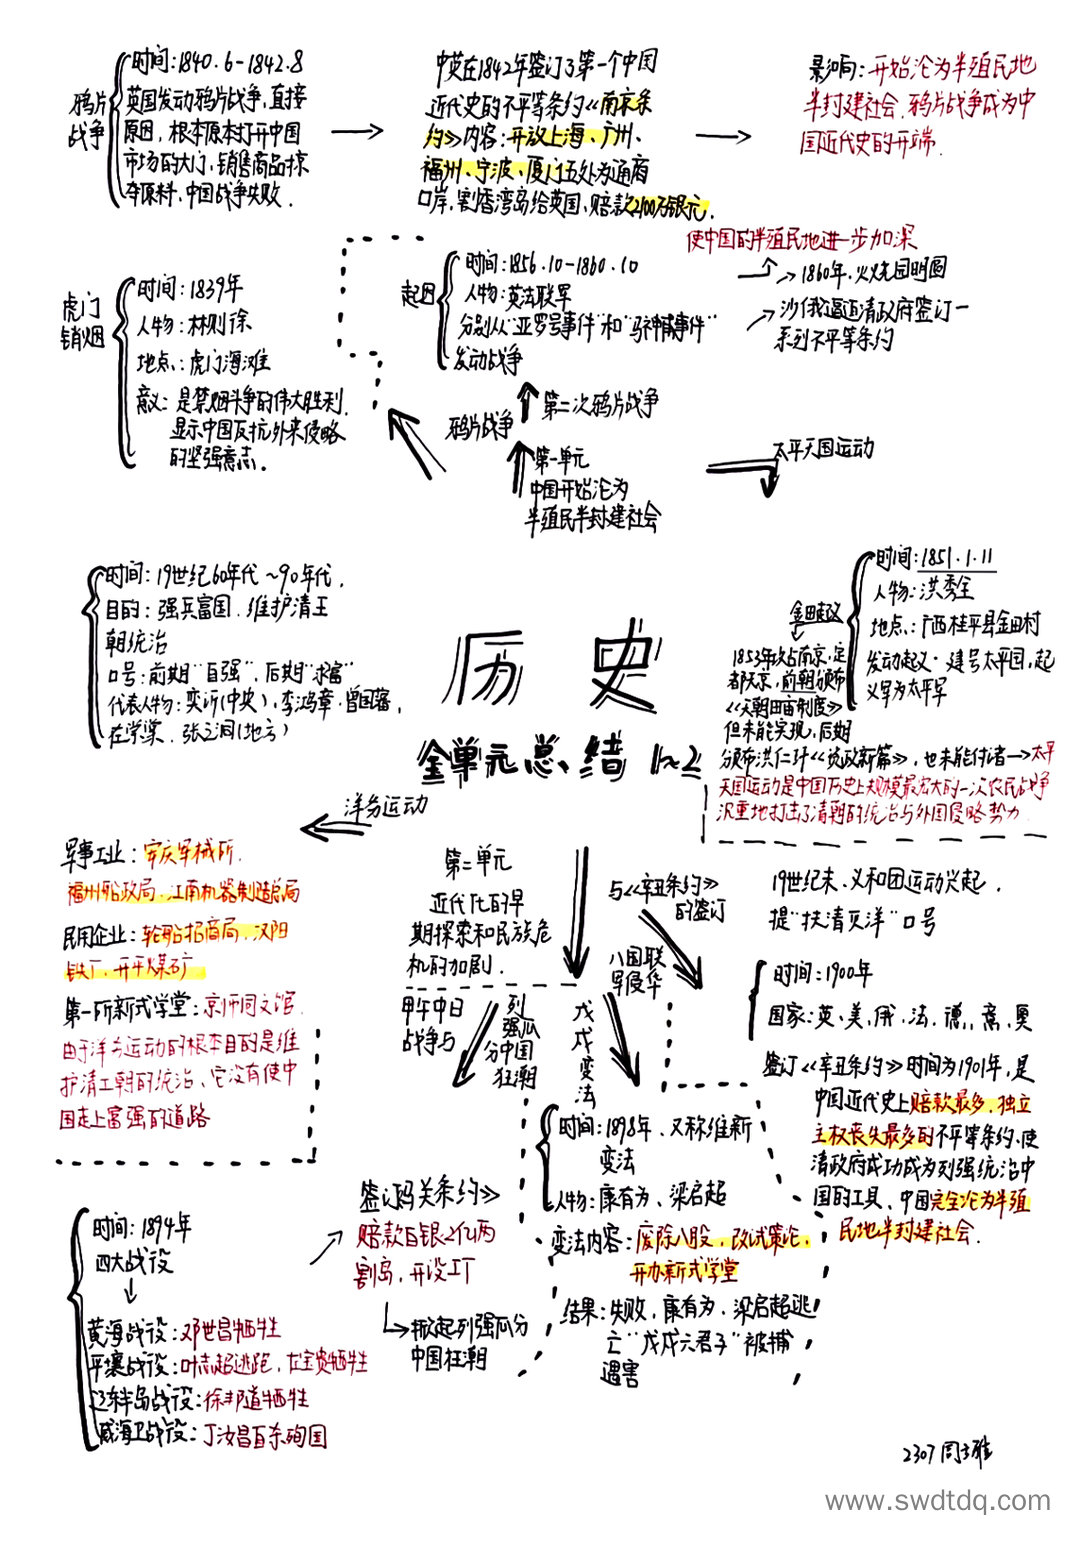 鸦片
战争
时间:1840.6-1842.8
英国发动鸦片战争,直接
原因,根本原本打开中国
市场的大门,销售商品掠
夺原料,中国战争失败.
中英在1842年签订了第一个中国
近代史的不平等条约《南京条
约》内容:开放上海、广州、
福州、宁波、厦门五处为通商
口岸,割香湾岛给英国,赔款2100万银元.
影响:开始沦为半殖民地
半封建社会.鸦片战争成为中
国近代史的开端.
虎门
销烟
时间:1839年
人物:林则徐
地点:虎门海滩
意义:是禁烟斗争的伟大胜利.
显示中国反抗外来侵略
的坚强意志.
使中国的半殖民地进一步加深
起因
时间:1856.10-1860.10
人物:英法联军
分别从"亚罗号事件"和"马神甫事件"
发动战争
1860年,火烧园明圆
沙俄逼迫清政府签订一
系列不平等条约
第二次鸦片战争
鸦片战争
第一单元
中国开始沦为
半殖民半封建社会
太平天国运动
时间:19世纪60年代~90年代.
目的:强兵富国.维护清王
朝统治
口号:前期"自强",后期"求富"
代表人物:奕䜣(中央),李鸿章.曾国藩,
左宗棠.张之洞(地方)
金田起义
时间:1851.1.11
人物:洪秀全
地点:广西桂平县金田村
发动起义.建号太平国,起
义军为太平军
1853年攻占南京,定
都天京,前期颁布
《天朝田亩制度》
但未能实现,后期
颁布洪仁玕《资政新篇》,也未能付诸→太平
天国运动是中国历史上规模最宏大的一次农民战争
沉重地打击了清朝的统治与外国侵略势力
历 史
全单元总结 1~2
洋务运动
军事工业:安庆军械所.
福州船政局.江南机器制造总局
民用企业:轮船招商局.汉阳
铁厂.开平煤矿
第一所新式学堂:京师同文馆.
由于洋务运动的根本目的是维
护清王朝的统治、它没有使中
国走上富强的道路
第二单元
近代化的早
期探索和民族危
机的加剧.
与《辛丑条约》
的签订
八国联
军侵华
19世纪末.义和团运动兴起.
提"扶清灭洋"口号
时间:1900年
国家:英、美、俄、法、德、意、奥
签订《辛丑条约》时间为1901年,是
中国近代史上赔款最多.独立
主权丧失最多的不平等条约.使
清政府成功成为列强统治中
国的工具、中国完全沦为半殖
民地半封建社会.
甲午中日
战争与
列
强瓜
分中国
狂潮
戊
戌
变
法
时间:1898年、又称维新
变法
人物:康有为、梁启超
变法内容:废除八股,改试策论,
开办新式学堂
结果:失败,康有为,梁启超逃
亡"戊戌六君子"被捕
遇害
时间:1894年
四大战役
黄海战役:邓世昌牺牲
平壤战役:叶志超逃跑,左宝贵牺牲
辽东半岛战役:徐邦道牺牲
威海卫战役:丁汝昌自杀殉国
签订《马关条约》
赔款白银2亿两
割岛,开设工厂
掀起列强瓜分
中国狂潮
www.swdtdq.com